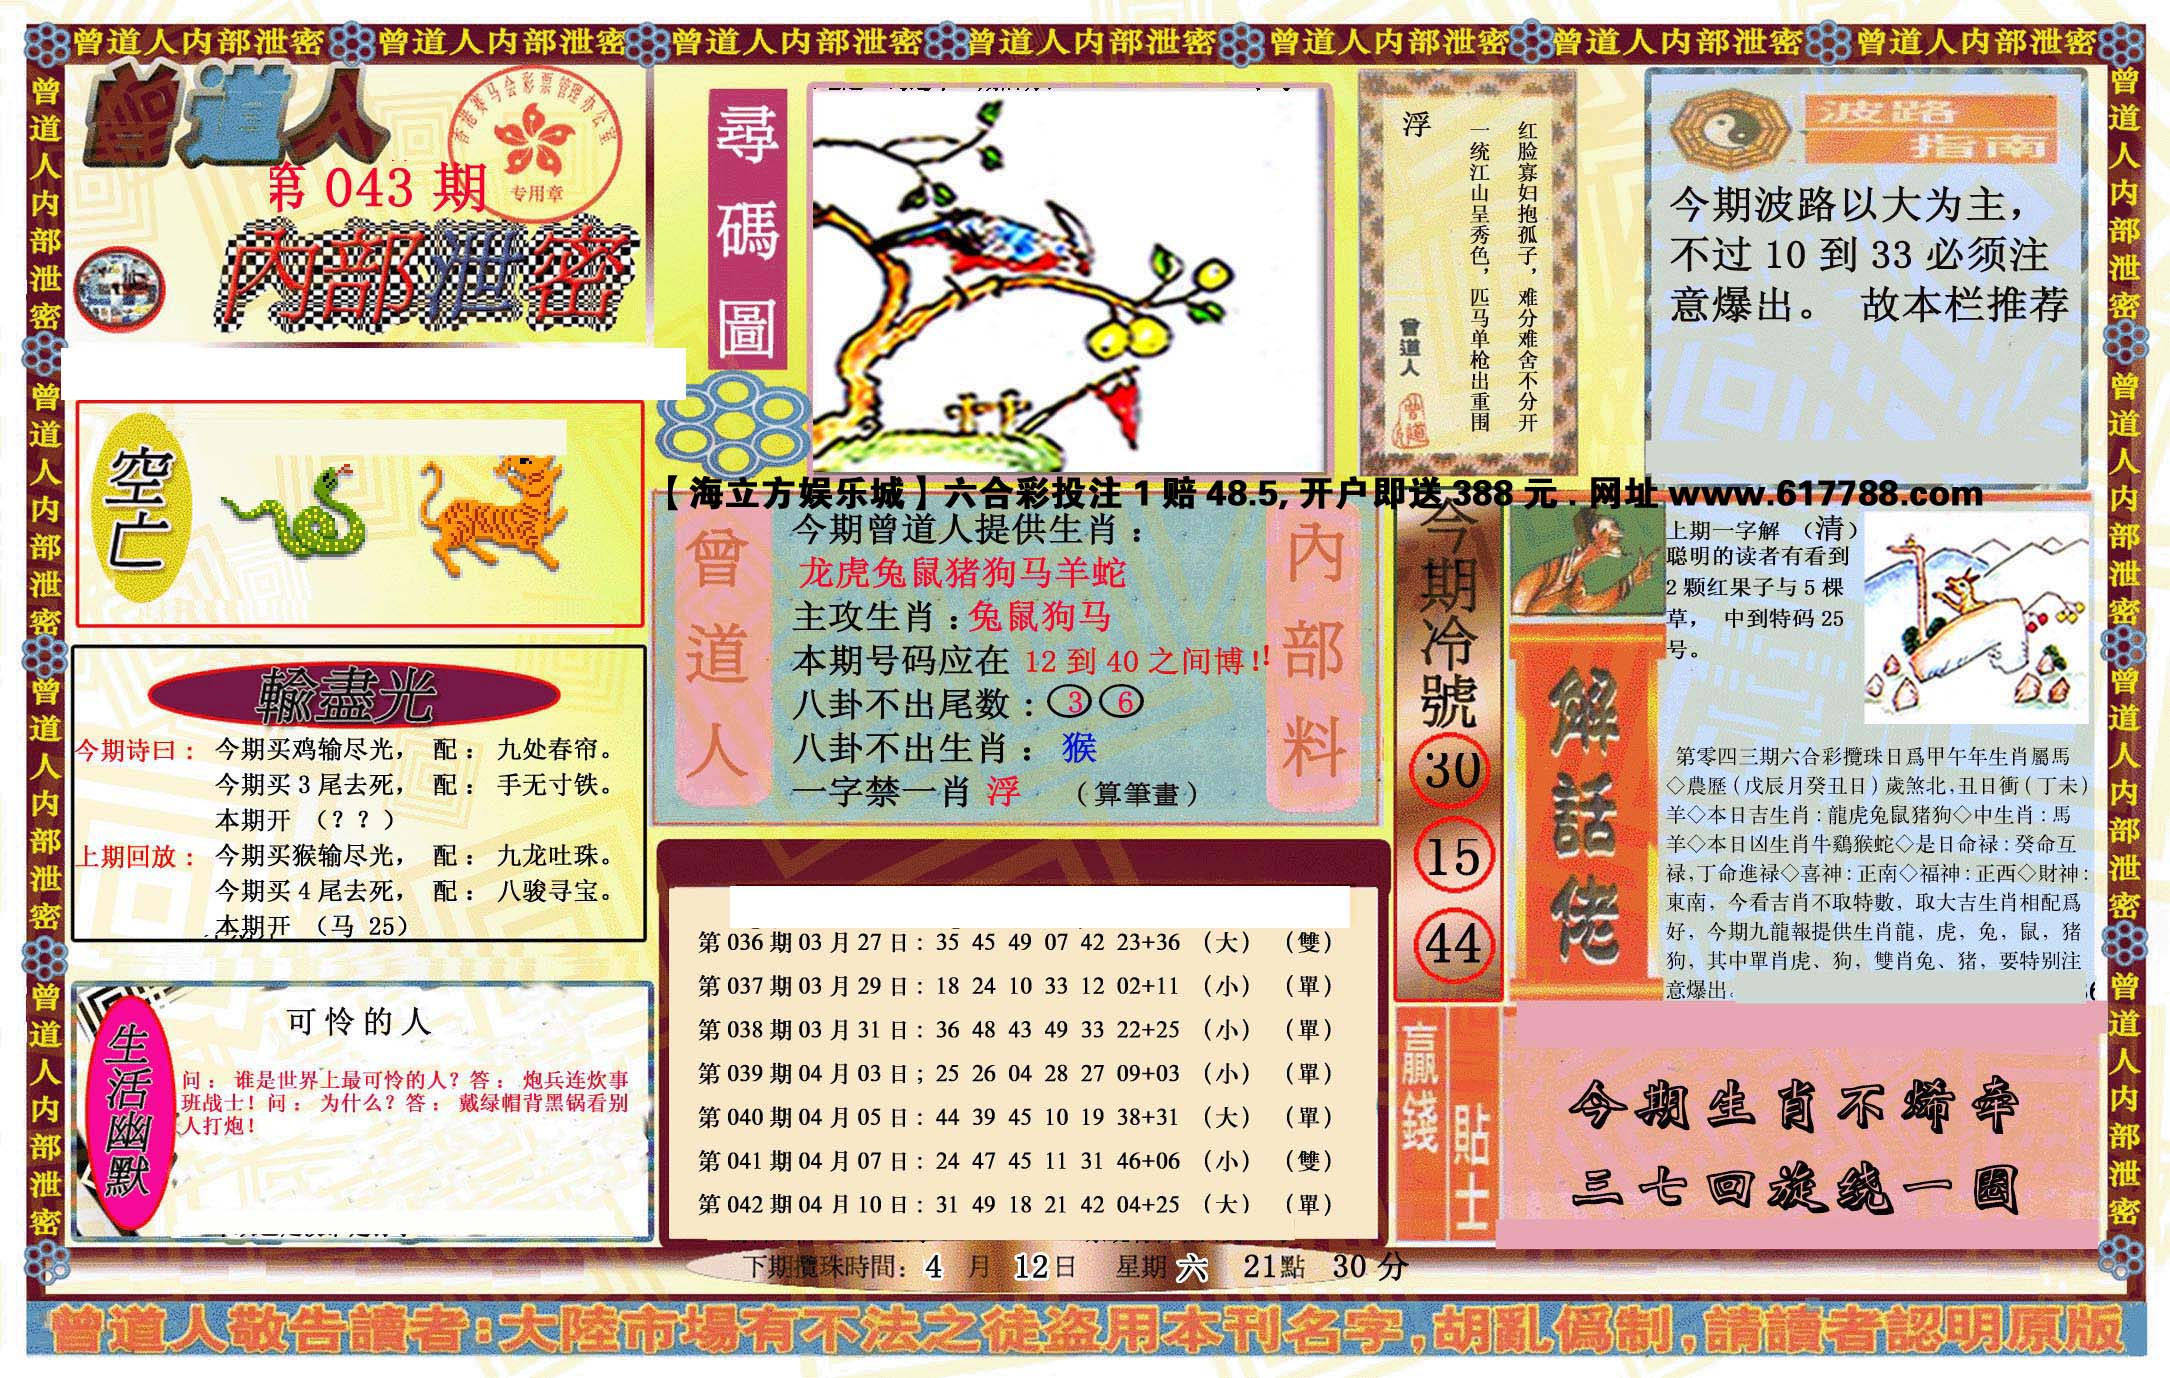 曾道人内部泄密 曾道人内部泄密 曾道人内部泄密 曾道人内部泄密 曾道人内部泄密 曾道人内部泄密 曾道人内部泄密
曾道人内部泄密
曾道人内部泄密
曾道人内部泄密
曾道人内部泄密
曾道人
香港赛马会彩票管理办公室
专用章
第 043 期
內部泄密
空亡
輸盡光
今期诗曰： 今期买鸡输尽光， 配： 九处春帘。
今期买 3 尾去死， 配： 手无寸铁。
本期开 （？？）
上期回放： 今期买猴输尽光， 配： 九龙吐珠。
今期买 4 尾去死， 配： 八骏寻宝。
本期开 （马 25）
生活幽默
可怜的人
问： 谁是世界上最可怜的人？答： 炮兵连炊事
班战士！问： 为什么？答： 戴绿帽背黑锅看别
人打炮！
尋碼圖
浮
红脸寡妇抱孤子，难分难舍不分开
一统江山呈秀色，匹马单枪出重围
曾道人
波路
指南
今期波路以大为主，
不过 10 到 33 必须注
意爆出。 故本栏推荐
【海立方娱乐城】六合彩投注 1 赔 48.5, 开户即送 388 元 . 网址 www.617788.com
曾道人
內部料
今期曾道人提供生肖：
龙虎兔鼠猪狗马羊蛇
主攻生肖：兔鼠狗马
本期号码应在 12 到 40 之间博！！
八卦不出尾数：3 6
八卦不出生肖： 猴
一字禁一肖 浮 （算筆畫）
今期冷號
30
15
44
第 036 期 03 月 27 日： 35 45 49 07 42 23+36 （大） （雙）
第 037 期 03 月 29 日： 18 24 10 33 12 02+11 （小） （單）
第 038 期 03 月 31 日： 36 48 43 49 33 22+25 （小） （單）
第 039 期 04 月 03 日；25 26 04 28 27 09+03 （小） （單）
第 040 期 04 月 05 日： 44 39 45 10 19 38+31 （大） （單）
第 041 期 04 月 07 日： 24 47 45 11 31 46+06 （小） （雙）
第 042 期 04 月 10 日： 31 49 18 21 42 04+25 （大） （單）
下期攪珠時間： 4 月 12日 星期 六 21點 30 分
解話佬
上期一字解 （清）
聪明的读者有看到
2 颗红果子与 5 棵
草， 中到特码 25
号。
第零四三期六合彩攬珠日爲甲午年生肖屬馬
◇農歷（戊辰月癸丑日）歲煞北，丑日衝（丁未）
羊◇本日吉生肖：龍虎兔鼠猪狗◇中生肖：馬
羊◇本日凶生肖牛鷄猴蛇◇是日命禄：癸命互
禄，丁命進禄◇喜神：正南◇福神：正西◇財神：
東南，今看吉肖不取特數，取大吉生肖相配爲
好，今期九龍報提供生肖龍，虎，兔，鼠，猪
狗，其中單肖虎、狗，雙肖兔、猪，要特别注
意爆出。
贏錢
貼士
今期生肖不烯牵
三七回旋绕一圈
曾道人敬告讀者：大陸市場有不法之徒盗用本刊名字，胡亂僞制，請讀者認明原版